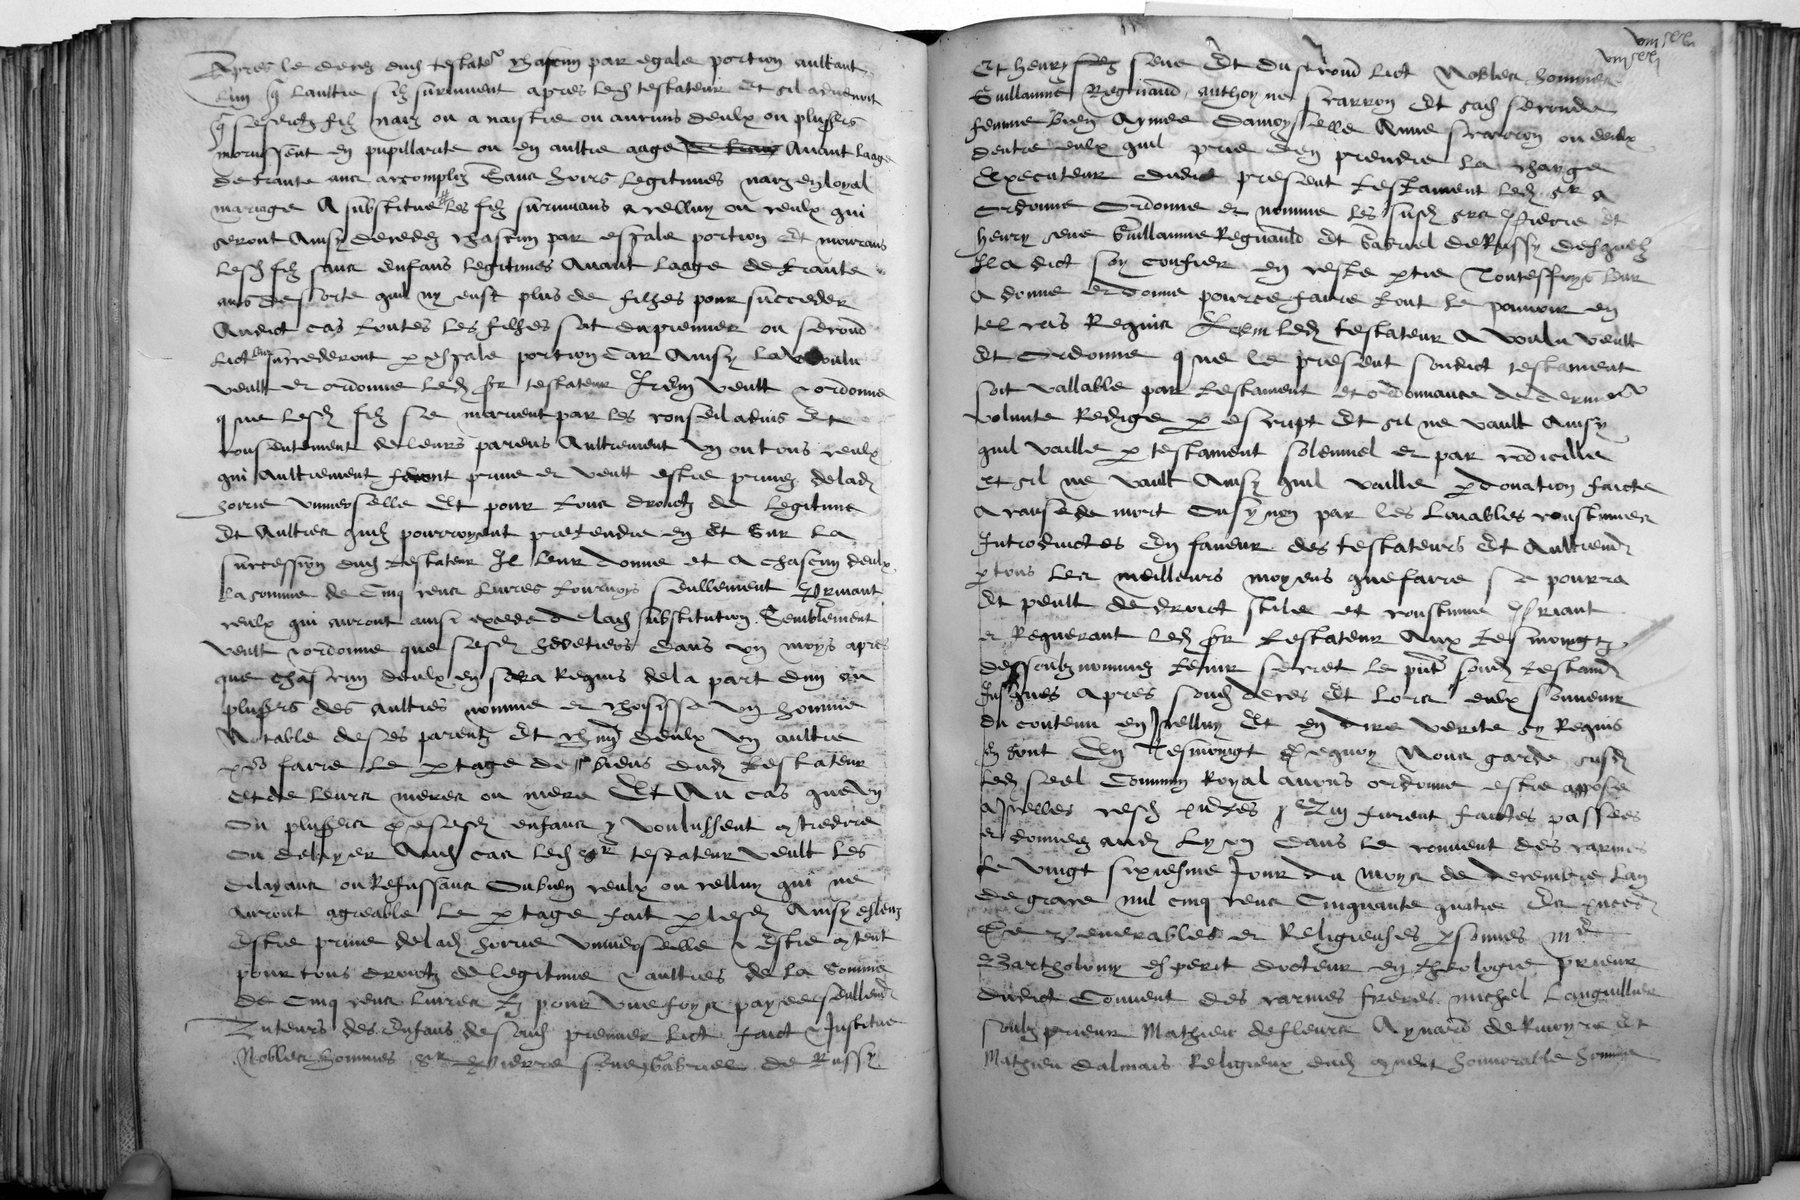 Apres le deces dudt testateur chascun par egale portion aultant
lun que laultre silz survivent apres ledt testateur Et sil advenoit
que sesditz filz naiz ou a naistre ou aucuns deulx ou plusieurs
morussent en pupillarite ou en aultre aage Avant laage
de trante ans accomplez Sans hoirs legitimes naiz en loyal
mariage A substitue les filz survivans a celluy ou ceulx qui
seront Ainsy decedez chascun par esgale portion Et mourans
lesdt filz sans Enfans legitimes Avant laage de trante
ans de sorte quil ny eust plus de filhes pour succeder
Audict cas toutes les filhes soit du premier ou second
lict luy succederont par esgale portion Car Ainsy la voulu
veult et ordonne ledt sr testateur Item veult & ordonne
que lesdt filz se marient par les conseil advis Et
consentement de leurs parens Aultrement un ou tous ceulx
qui Aultrement feront prive et veult estre privez de ladt
hoirie universelle Et pour tous droictz de legitime
Et Aultres quilz pourroyent pretendre en Et Sur la
succession dudt testateur Il leur donne et a chascun deulx
la somme de Cinq cens livres tournoys seullement
ceulx qui auront ainsi excede de ladt substitution Semblement
veult & ordonne que sesdt heretiers dans un moys apres
que chascun deulx en sera Requis de la part dun ou
plusieurs des aultres nomme et choisisse un homme
Notable de ses parentz Et chascun deulx un aultre
pour faire le partage des biens dudt testateur
Et de leurs meres ou mere Et Au cas que un
Ou plusieurs de sesdt enfans y voulussent contredire
Ou delayer Audt cas ledt sr testateur veult les
dilayans ou Refussans Ou bien ceulx ou celluy qui ne
Auront agreable le partage fait par lesdt Ainsy esleuz
Estre prive de ladt hoirie universelle & Estre content
pour tous droictz de legitime & aultres de la Somme
de Cinq cens livres tz pour une foys payee seullement
Tuteurs des Enfans de sondt premier lict faict & Institue
Nobles hommes sr Pierre seve Gabriel de Russy
Et henry seve Et du second lict Nobles hommes
Guillaume Regnaud anthoyne scarron Et sadt seconde
femme bien Aymee damoyselle Anne scarron ou deulx
dentre eulx quil prie den prendre la charge
Executeur dudict present testament ledt sr a
Ordonne Ordonne et nomme les susdt srs Pierre Et
henry seve Guillaume Regnauld Et Gabriel de Russy desquelz
Il a dict soy confier en ceste partie Toutesfoys leur
a donne et donne pour ce faire tout le pouvoir en
tel cas Requis Item ledt testateur A voulu veult
Et Ordonne que le present sondict testament
soit vallable par testament et ordonnance de derniere
volunte Redige par escript Et sil ne vault Ainsy
quil vaille par testament solemnel et par codicille
Et sil ne vault Ainsy quil vaille par donation faicte
A cause de mort Ou synon par les louables coustumes
Introductes En faveur des testateurs Et Aultrement
par tous les meilleurs moyens que faire se pourra
Et peult de droict stile et coustume Priant
et Requerant ledt sr testateur Aux tesmoingtz
dessoubz nommez tenir secret le present sondt testament
Jusques apres sondt deces Et lors eulx souvenir
du contenu en Icelluy Et en dire verite sy Requis
en sont En Tesmoingt de quoy Nous garde susdt
ledt seel Commun Royal avons ordonne estre appose
a Icelles cesdt presentes Qui furent faictes passees
et donnees audt Lyon dans le couvent des carmes
le vingt sixiesme Jour du moys de decembre lan
de grace mil cinq cens Cinquante quatre Es presences
De Venerables et Religieuses personnes
Bartholomy Esperit docteur en theologie prieur
dudict Couvent des carmes freres michel Languillier
soubz prieur Mathieu de fleurs Aynard de Et
Mathieu dalmais Religieux dudt couvent honnorable homme